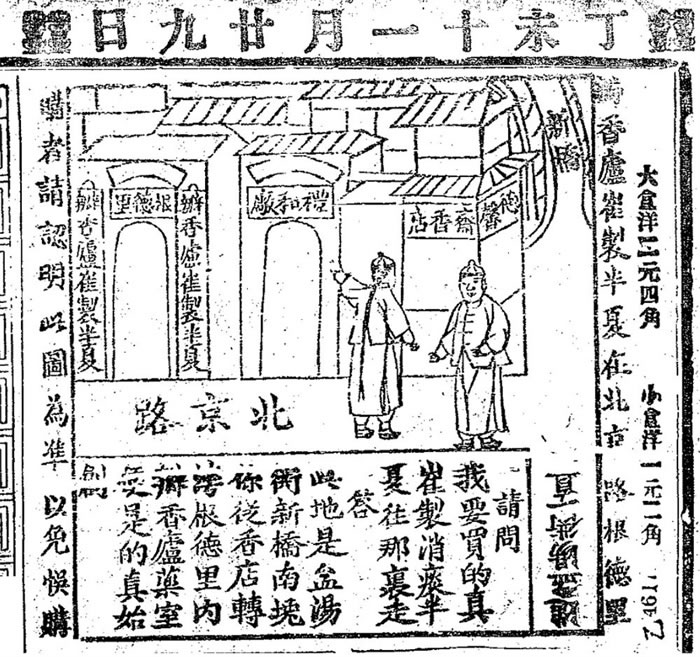 丁未十一月廿九日
大盒洋二元四角 小盒洋一元二角
香廬崔製半夏在北京路根德里
新橋
德馨
齋香店
禮和廠
根德里
瓣香廬崔製半夏
瓣香廬崔製半夏
北京路
請問
我要買的真
崔製消痰半
夏往那裏走
答
此地是盆湯
衖新橋南堍
你從香店轉
灣根德里內
瓣香廬藥室
是的真始
創
購者請認明此圖為準以免悞購